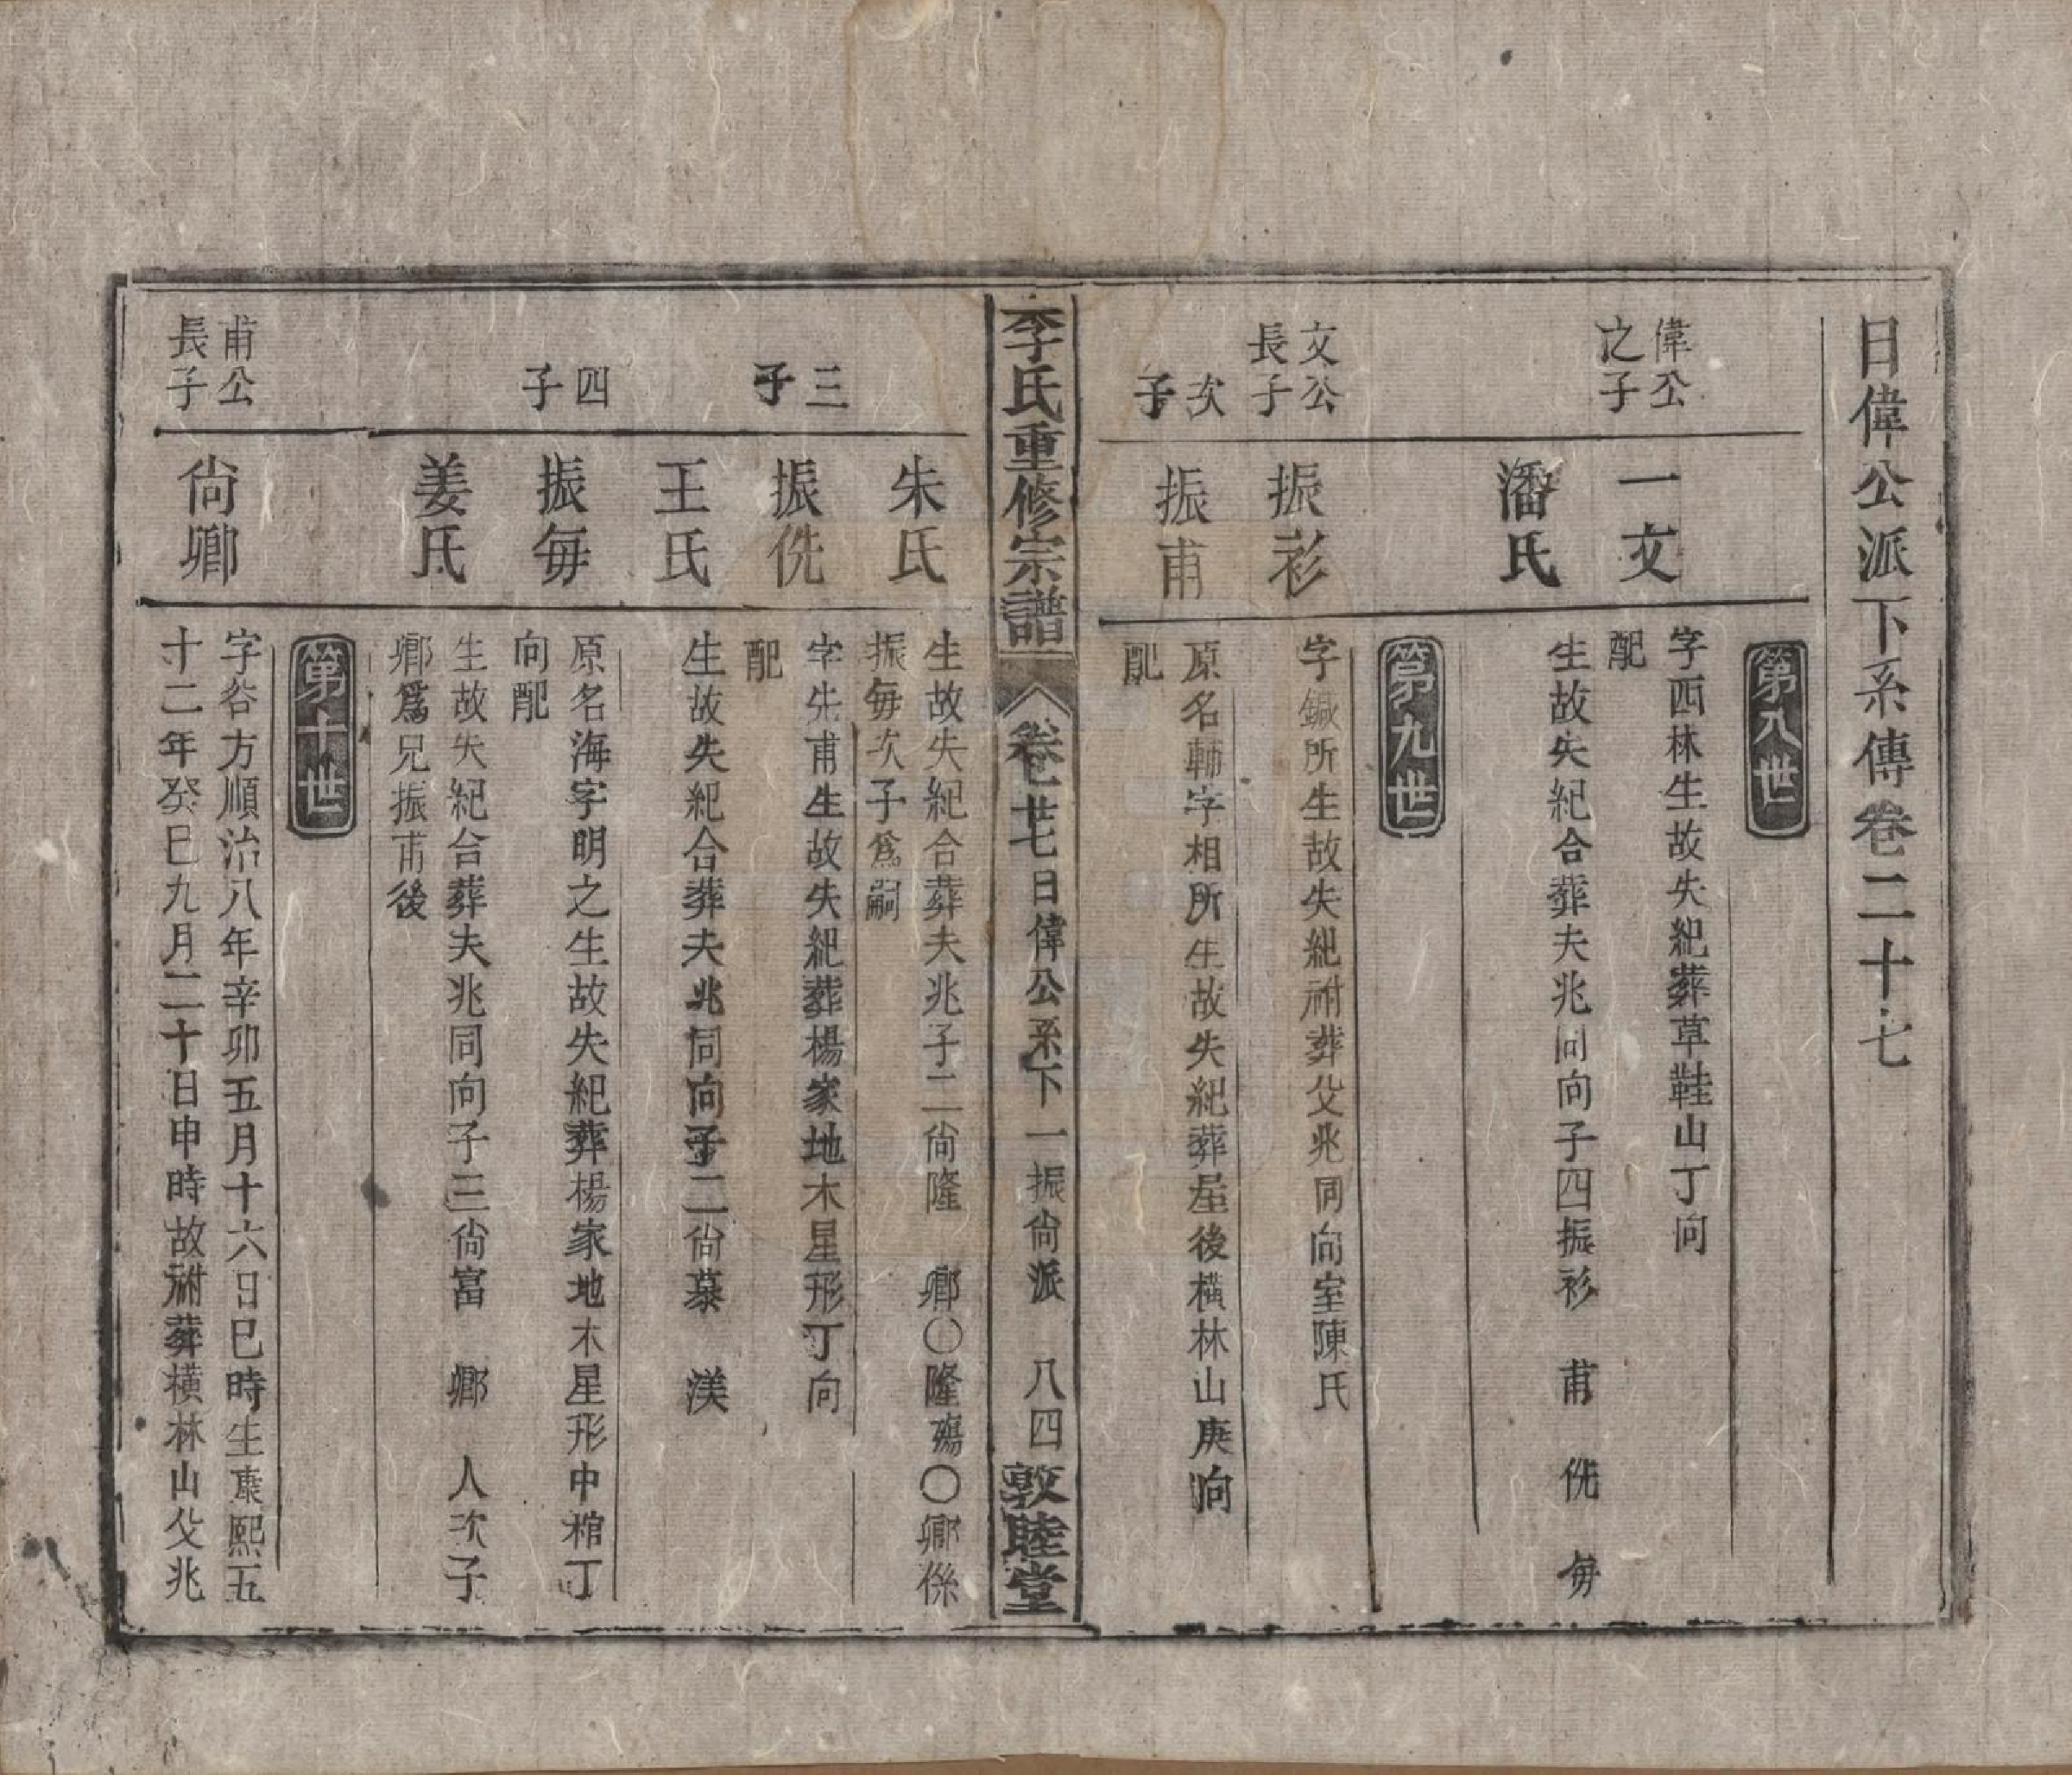 日偉公派下系傳卷二十七
第八世
偉公
之子
一文
字西林生故失紀葬草鞋山丁向
配
潘氏
生故失紀合葬夫兆同向子四振衫　甫　侁　毎
第九世
文公
長子
振衫
字鍼所生故失紀祔葬父兆同向室陳氏
次
子
振甫
原名輔字相所生故失紀葬屋後橫林山庚向
配
李氏重修宗譜
卷廿七日偉公系下　一振尙派　八四
敦睦堂
朱氏
生故失紀合葬夫兆子二尙隆　鄉〇隆殤〇鄉係
振毎次子爲嗣
三
子
振侁
字先甫生故失紀葬楊家地木星形丁向
配
王氏
生故失紀合葬夫兆同向子二尙慕　渼
四
子
振毎
原名海字明之生故失紀葬楊家地木星形中棺丁
向配
姜氏
生故失紀合葬夫兆同向子三尙富　鄉　人次子
鄉爲兄振甫後
第十世
甫公
長子
尙鄉
字谷方順治八年辛卯五月十六日巳時生康熙五
十二年癸巳九月二十日申時故祔葬橫林山父兆